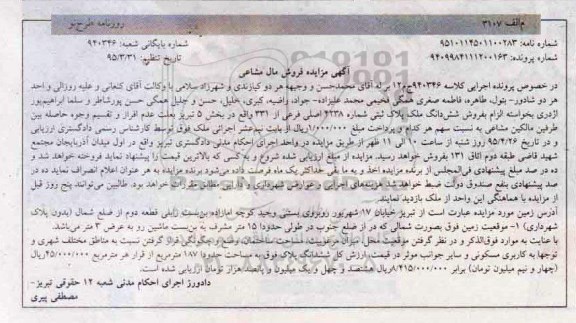 م الف ۳۱۰۷
روزنامه طرح نو
شماره نامه: ۹۵۱۰۱۱۴۵۰۱۱۰۰۲۸۳
شماره بایگانی شعبه: ۹۴۰۳۴۶
شماره پرونده: ۹۴۰۹۹۸۴۱۱۱۲۰۰۱۶۳
تاریخ تنظیم: ۹۵/۳/۳۱
آگهی مزایده فروش مال مشاعی
در خصوص پرونده اجرایی کلاسه ۹۴۰۳۴۶ج۱۲۰ برله آقای محمدحسن و وجیهه هر دو کیازندی و شهرزاد سلامی با وکالت آقای کنعانی و علیه روزالی و احد
هر دو شادور- بتول، طاهره، فاطمه صغری همگی فخیمی محمد علیزاده- جواد، راضیه، کبری، خلیل، حسن و جلیل همگی حسن پورشاطر و سلما ابراهیم‌پور
آذری بخواسته الزام بفروش شش‌دانگ ملک پلاک ثبتی شماره ۴۲۳۸ اصلی فرعی از ۳۳۱ واقع در بخش ۵ تبریز بعلت عدم افراز و تقسیم وجوه حاصله بین
طرفین مالکین مشاعی به نسبت سهم هر کدام و پرداخت مبلغ ۱/۰۰۰/۰۰۰ریال از بابت نیم‌عشر اجرائی ملک فوق توسط کارشناس رسمی دادگستری ارزیابی
و در تاریخ ۹۵/۴/۲۶ روز شنبه از ساعت ۱۰ الی ۱۱ ظهر از طریق مزایده در واحد اجرای احکام مدنی دادگستری تبریز واقع در اول میدان آذربایجان مجتمع
شهید قاضی طبقه دوم اتاق ۱۳۱ بفروش خواهد رسید. مزایده از مبلغ ارزیابی شده شروع و به کسی که بالاترین قیمت را پیشنهاد نماید فروخته خواهد شد و
ده در صد مبلغ پیشنهادی فی‌المجلس از برنده مزایده اخذ و به مابقی حداکثر یک ماه فرصت داده می‌شود برنده مزایده به هر عنوان اعلام انصراف نماید ده در
صد پیشنهادی بنفع صندوق دولت ضبط خواهد شد هزینه‌های اجرایی و عوارض شهرداری و دارایی مطابق مقررات خواهد بود. طالبین می‌توانند پنج روز قبل
از مزایده با هماهنگی این واحد از ملک بازدید نمایند.
آدرس زمین مورد مزایده عبارت است از تبریز خیابان ۱۷ شهریور روبروی پستی وحید کوچه امازاده بن‌بست زابلی قطعه دوم از ضلع شمال (بدون پلاک
شهرداری) ۱- موقعیت زمین فوق بصورت شمالی که در از ضلع جنوب در طولی حدودا ۱۵ متر مشرف به بن‌بست ماشین رو به عرض ۳ متر می‌باشد.
با عنایت به موارد فوق‌الذکر و در نظر گرفتن موقعیت محل میزان مرغوبیت مساحت ساختمان وضع و چگونگی قرار گرفتن نسبت به مناطق مختلف شهری و
توجها به کاربری مسکونی و سایر جوانب موثر در قیمت ارزش کل ششدانگ پلاک فوق به مساحت حدود ۱۸۷ مترمربع از قرار هر مترمربع ۴۵/۰۰۰/۰۰۰ریال
(چهار و نیم میلیون تومان) برابر ۸/۴۱۵/۰۰۰/۰۰۰ ریال هشتصد و چهل و یک میلیون و پانصد هزار تومان ارزیابی شده است.
دادورز اجرای احکام مدنی شعبه ۱۲ حقوقی تبریز-
مصطفی پیری